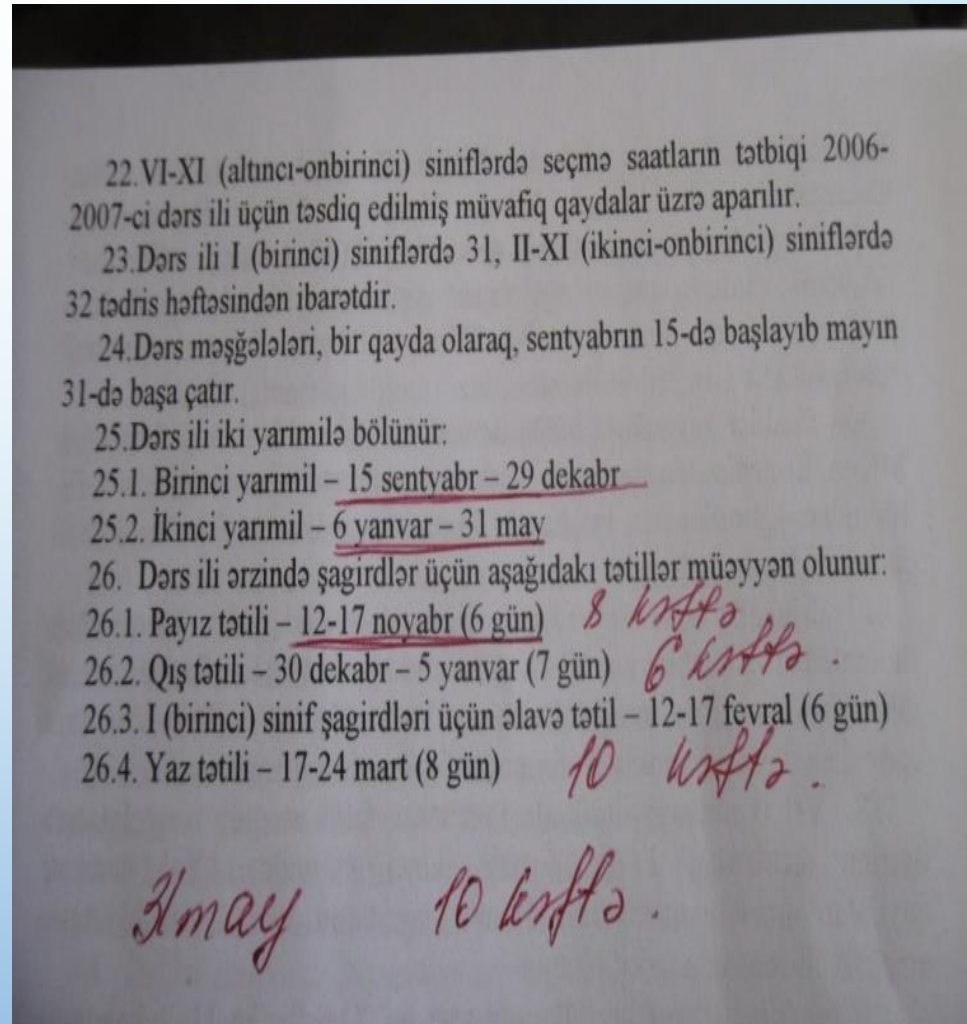 22.VI-XI (altıncı-onbirinci) siniflərdə seçmə saatların tətbiqi 2006-
2007-ci dərs ili üçün təsdiq edilmiş müvafiq qaydalar üzrə aparılır.
23.Dərs ili I (birinci) siniflərdə 31, II-XI (ikinci-onbirinci) siniflərdə
32 tədris həftəsindən ibarətdir.
24.Dərs məşğələləri, bir qayda olaraq, sentyabrın 15-də başlayıb mayın
31-də başa çatır.
25.Dərs ili iki yarımilə bölünür:
25.1. Birinci yarımil – 15 sentyabr – 29 dekabr
25.2. İkinci yarımil – 6 yanvar – 31 may
26. Dərs ili ərzində şagirdlər üçün aşağıdakı tətillər müəyyən olunur:
26.1. Payız tətili – 12-17 noyabr (6 gün) 8 həftə.
26.2. Qış tətili – 30 dekabr – 5 yanvar (7 gün) 6 həftə.
26.3. I (birinci) sinif şagirdləri üçün əlavə tətil – 12-17 fevral (6 gün)
26.4. Yaz tətili – 17-24 mart (8 gün) 10 həftə.
31may 10 həftə.